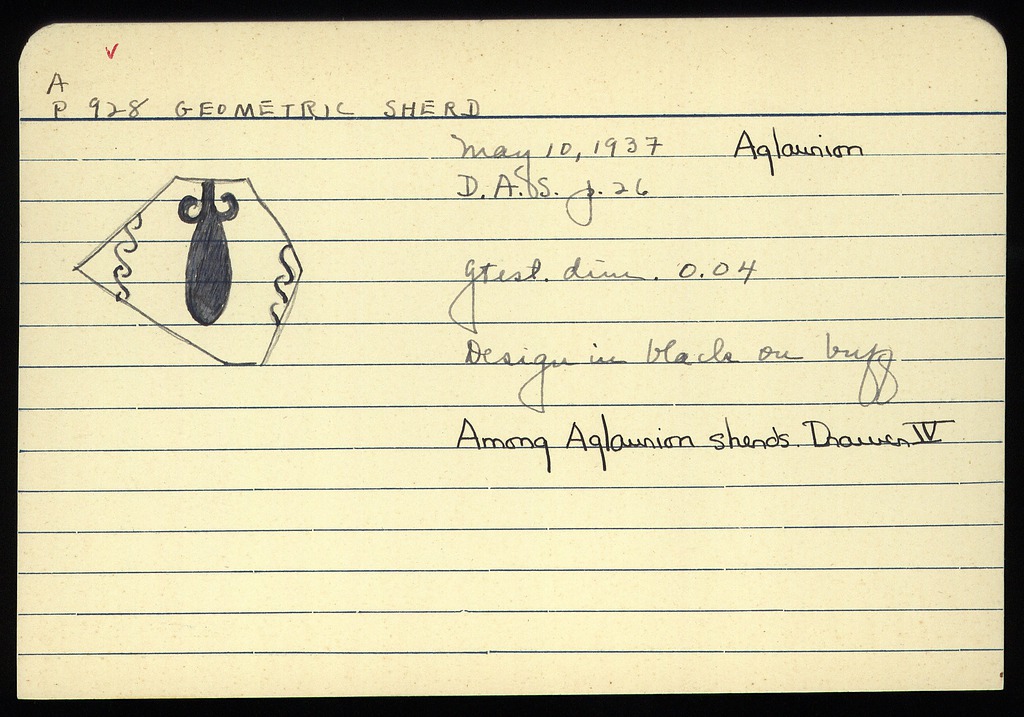 A
P 928 GEOMETRIC SHERD
May 10, 1937 Aglaurion
D.A.S. p. 26
gtest. dim. 0.04
Design in black on buff
Among Aglaurion sherds. Drawer IV